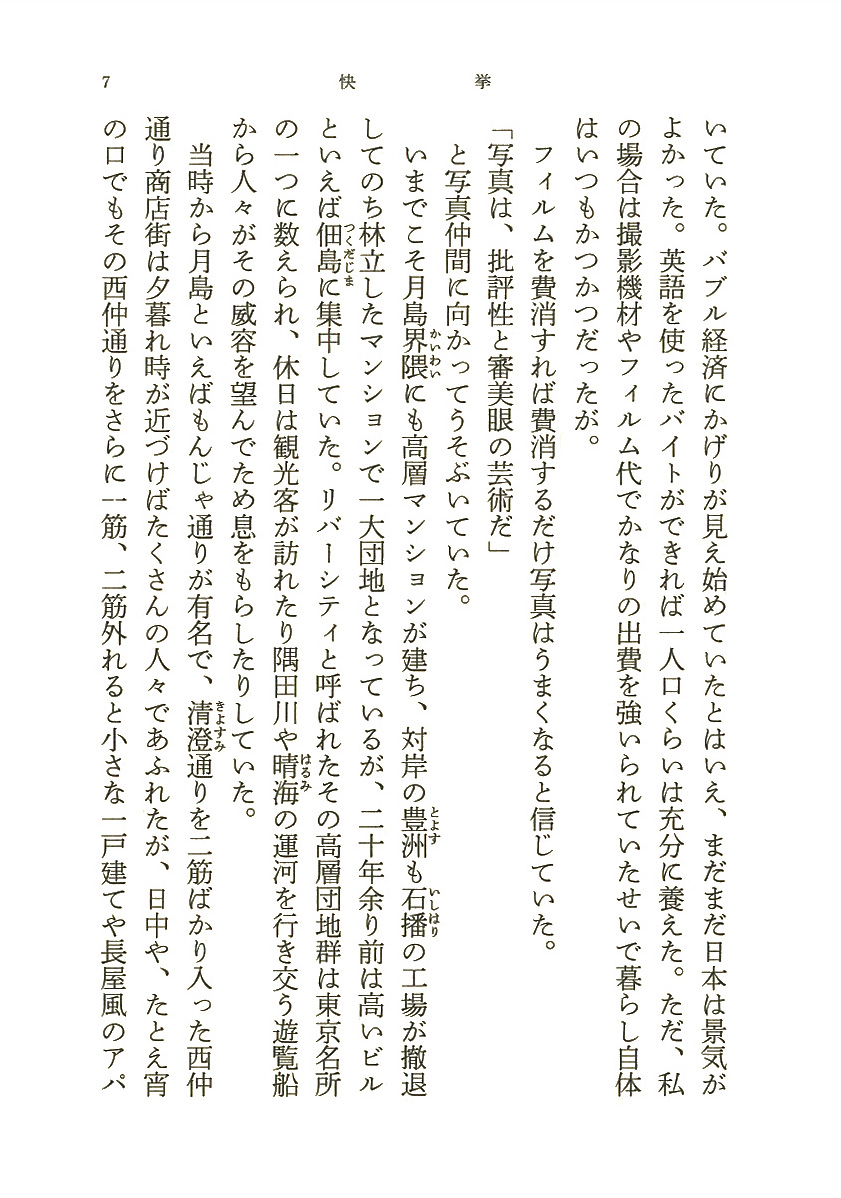 7
快挙
いていた。バブル経済にかげりが見え始めていたとはいえ、まだまだ日本は景気が
よかった。英語を使ったバイトができれば一人口くらいは充分に養えた。ただ、私
の場合は撮影機材やフィルム代でかなりの出費を強いられていたせいで暮らし自体
はいつもかつかつだったが。
フィルムを費消すれば費消するだけ写真はうまくなると信じていた。
「写真は、批評性と審美眼の芸術だ」
と写真仲間に向かってうそぶいていた。
いまでこそ月島界隈にも高層マンションが建ち、対岸の豊洲も石播の工場が撤退
してのち林立したマンションで一大団地となっているが、二十年余り前は高いビル
といえば佃島に集中していた。リバーシティと呼ばれたその高層団地群は東京名所
の一つに数えられ、休日は観光客が訪れたり隅田川や晴海の運河を行き交う遊覧船
から人々がその威容を望んでため息をもらしたりしていた。
当時から月島といえばもんじゃ通りが有名で、清澄通りを二筋ばかり入った西仲
通り商店街は夕暮れ時が近づけばたくさんの人々であふれたが、日中や、たとえ宵
の口でもその西仲通りをさらに一筋、二筋外れると小さな一戸建てや長屋風のアパ
かいわい
とよす
いしはり
つくだじま
はるみ
きよすみ